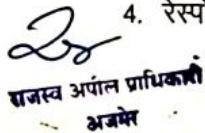 4. रेस्प
राजस्व अपील प्राधिकारी
अजमेर